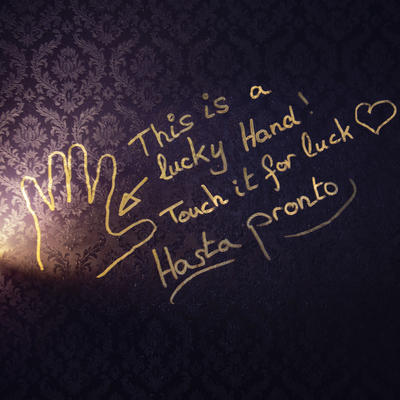 This is a
lucky Hand!
Touch it for luck
Hasta pronto